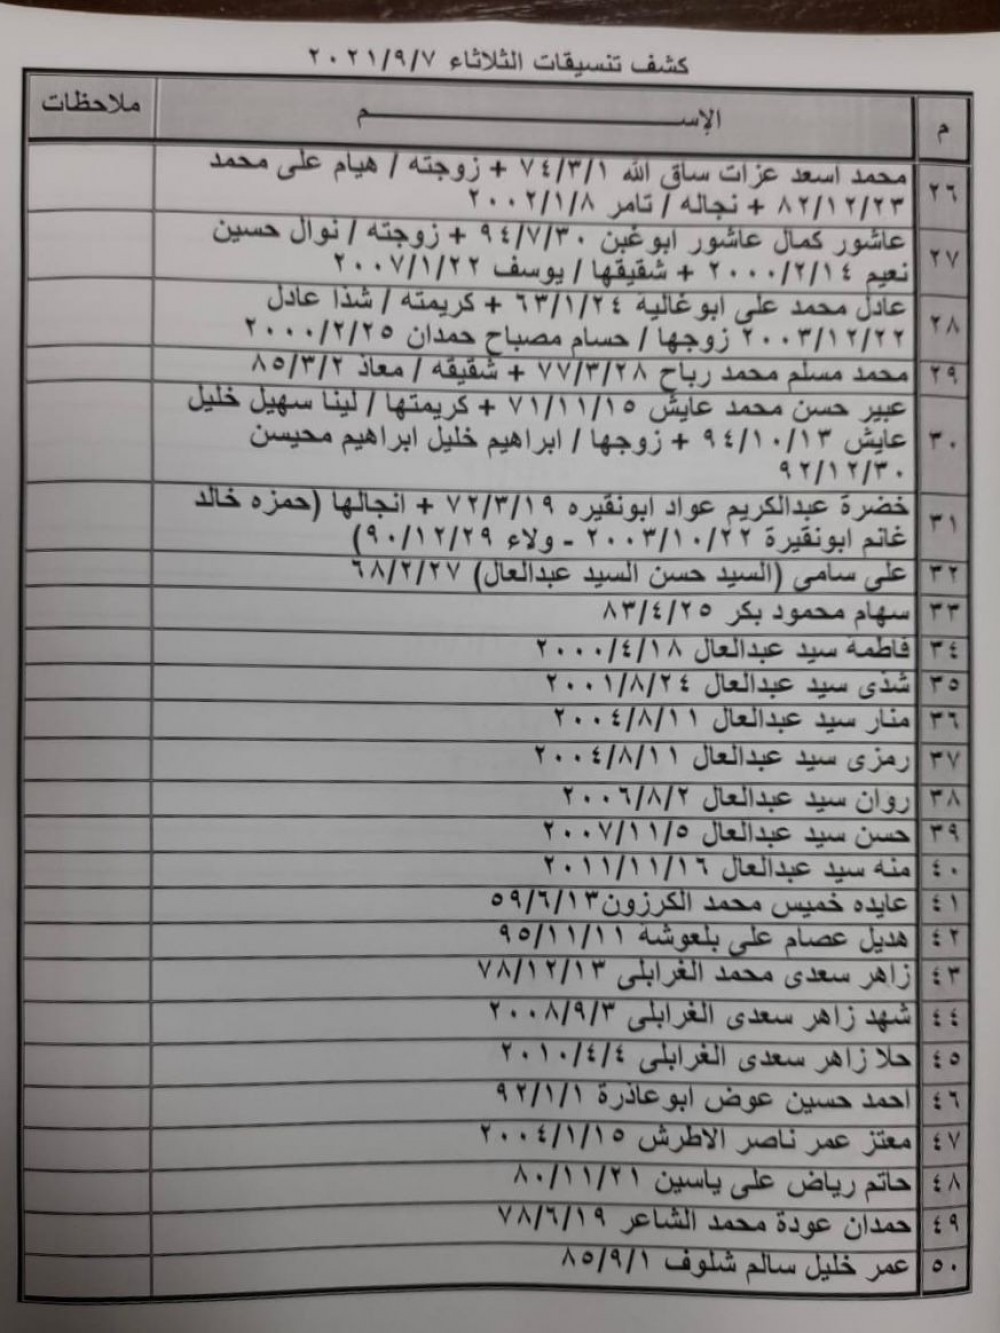 كشف تنسيقات الثلاثاء ٢٠٢١/٩/٧
م الإســـــــم ملاحظات
٢٦ محمد اسعد عزات ساق الله ٧٤/٣/١ + زوجته / هيام على محمد
٨٢/١٢/٢٣ + نجاله / تامر ٢٠٠٢/١/٨
٢٧ عاشور كمال عاشور ابوغبن ٩٤/٧/٣٠ + زوجته / نوال حسين
نعيم ٢٠٠٠/٢/١٤ + شقيقها / يوسف ٢٠٠٧/١/٢٢
٢٨ عادل محمد على ابوغاليه ٦٣/١/٢٤ + كريمته / شذا عادل
٢٠٠٣/١٢/٢٢ زوجها / حسام مصباح حمدان ٢٠٠٠/٢/٢٥
٢٩ محمد مسلم محمد رباح ٧٧/٣/٢٨ + شقيقه / معاذ ٨٥/٣/٢
٣٠ عبير حسن محمد عايش ٧١/١١/١٥ + كريمتها / لينا سهيل خليل
عايش ٩٤/١٠/١٣ + زوجها / ابراهيم خليل ابراهيم محيسن
٩٢/١٢/٣٠
٣١ خضرة عبدالكريم عواد ابونقيره ٧٢/٣/١٩ + انجالها (حمزه خالد
غانم ابونقيرة ٢٠٠٣/١٠/٢٢ - ولاء ٩٠/١٢/٢٩)
٣٢ على سامى (السيد حسن السيد عبدالعال) ٦٨/٢/٢٧
٣٣ سهام محمود بكر ٨٣/٤/٢٥
٣٤ فاطمة سيد عبدالعال ٢٠٠٠/٤/١٨
٣٥ شذى سيد عبدالعال ٢٠٠١/٨/٢٤
٣٦ منار سيد عبدالعال ٢٠٠٤/٨/١١
٣٧ رمزى سيد عبدالعال ٢٠٠٤/٨/١١
٣٨ روان سيد عبدالعال ٢٠٠٦/٨/٢
٣٩ حسن سيد عبدالعال ٢٠٠٧/١١/٥
٤٠ منه سيد عبدالعال ٢٠١١/١١/١٦
٤١ عايده خميس محمد الكرزون٥٩/٦/١٣
٤٢ هديل عصام على بلعوشة ٩٥/١١/١١
٤٣ زاهر سعدى محمد الغرابلى ٧٨/١٢/١٣
٤٤ شهد زاهر سعدى الغرابلى ٢٠٠٨/٩/٣
٤٥ حلا زاهر سعدى الغرابلى ٢٠١٠/٤/٤
٤٦ احمد حسين عوض ابوعاذرة ٩٢/١/١
٤٧ معتز عمر ناصر الاطرش ٢٠٠٤/١/١٥
٤٨ حاتم رياض على ياسين ٨٠/١١/٢١
٤٩ حمدان عودة محمد الشاعر ٧٨/٦/١٩
٥٠ عمر خليل سالم شلوف ٨٥/٩/١